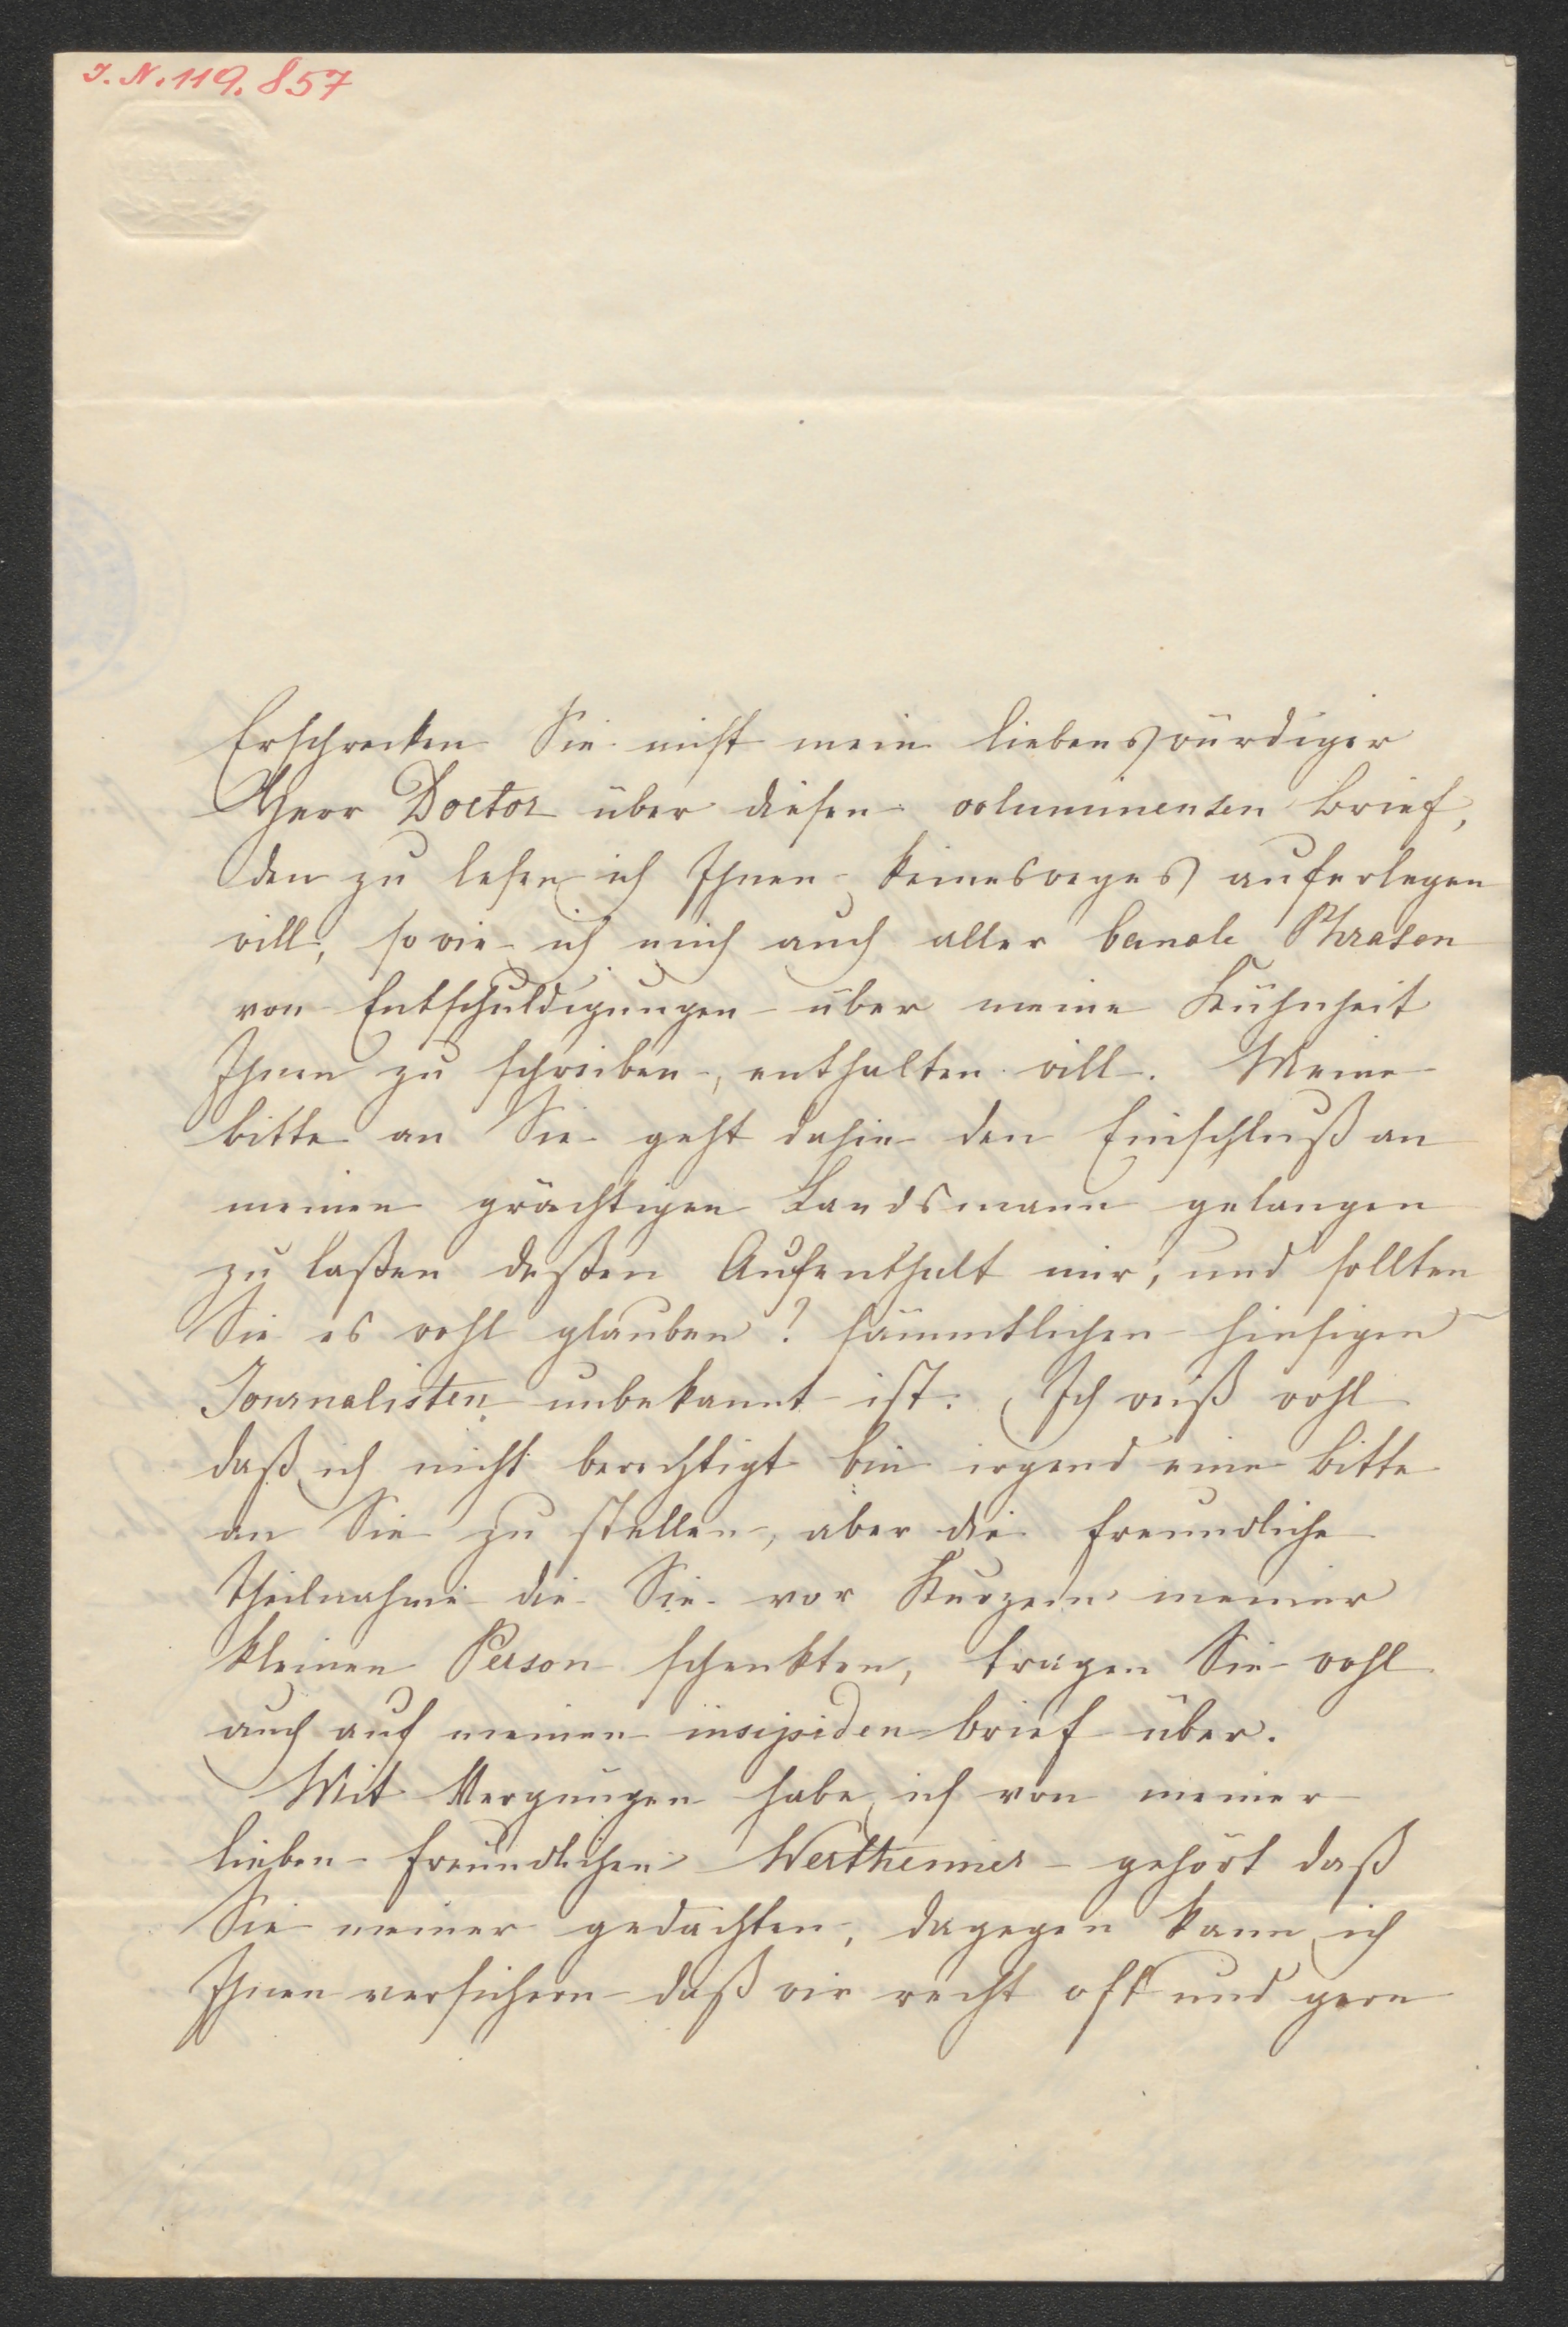 I. N. 119.857
Erschrecken Sie nicht mein liebenswürdiger
Herr Doctor über diesen voluminensen Brief,
den zu lesen ich Ihnen keinesweges auferlegen
will, so wie ich mich auch aller banale Phrasen
von Entschuldigungen über meine Kühnheit
Ihnen zu schreiben, enthalten will. Meine
Bitte an Sie geht dahin den Einschluß an
meinen prächtigen Landsmann gelangen
zu laßen deßen Aufenthalt mir, und sollten
Sie es wohl glauben? sämmtlichen hiesigen
Journalisten unbekannt ist. Ich weiß wohl
daß ich nicht berechtigt bin irgend eine Bitte
an Sie zu stellen, aber die freundliche
Theilnahme die Sie vor Kurzem meiner
kleinen Person schenkten, tragen Sie wohl
auch auf meinen insipiden Brief über.
Mit Vergnügen habe ich von meiner
lieben freundlichen Wertheimer gehört daß
Sie meiner gedachten, dagegen kann ich
Ihnen versichern daß wir recht oft und gern